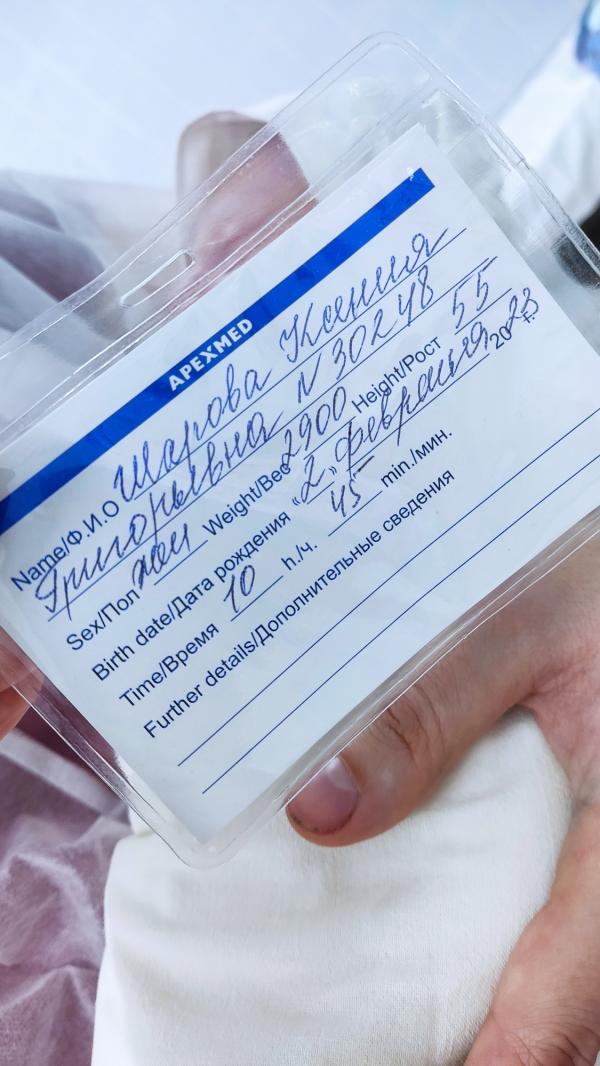 APEXMED
Name/Ф.И.О Шарова Ксения
Григорьевна N 30248
Sex/Пол жен Weight/Вес 2900 Height/Рост 55
Birth date/Дата рождения "2" февраля 2023 г.
Time/Время 10 h./ч. 45 min./мин.
Further details/Дополнительные сведения